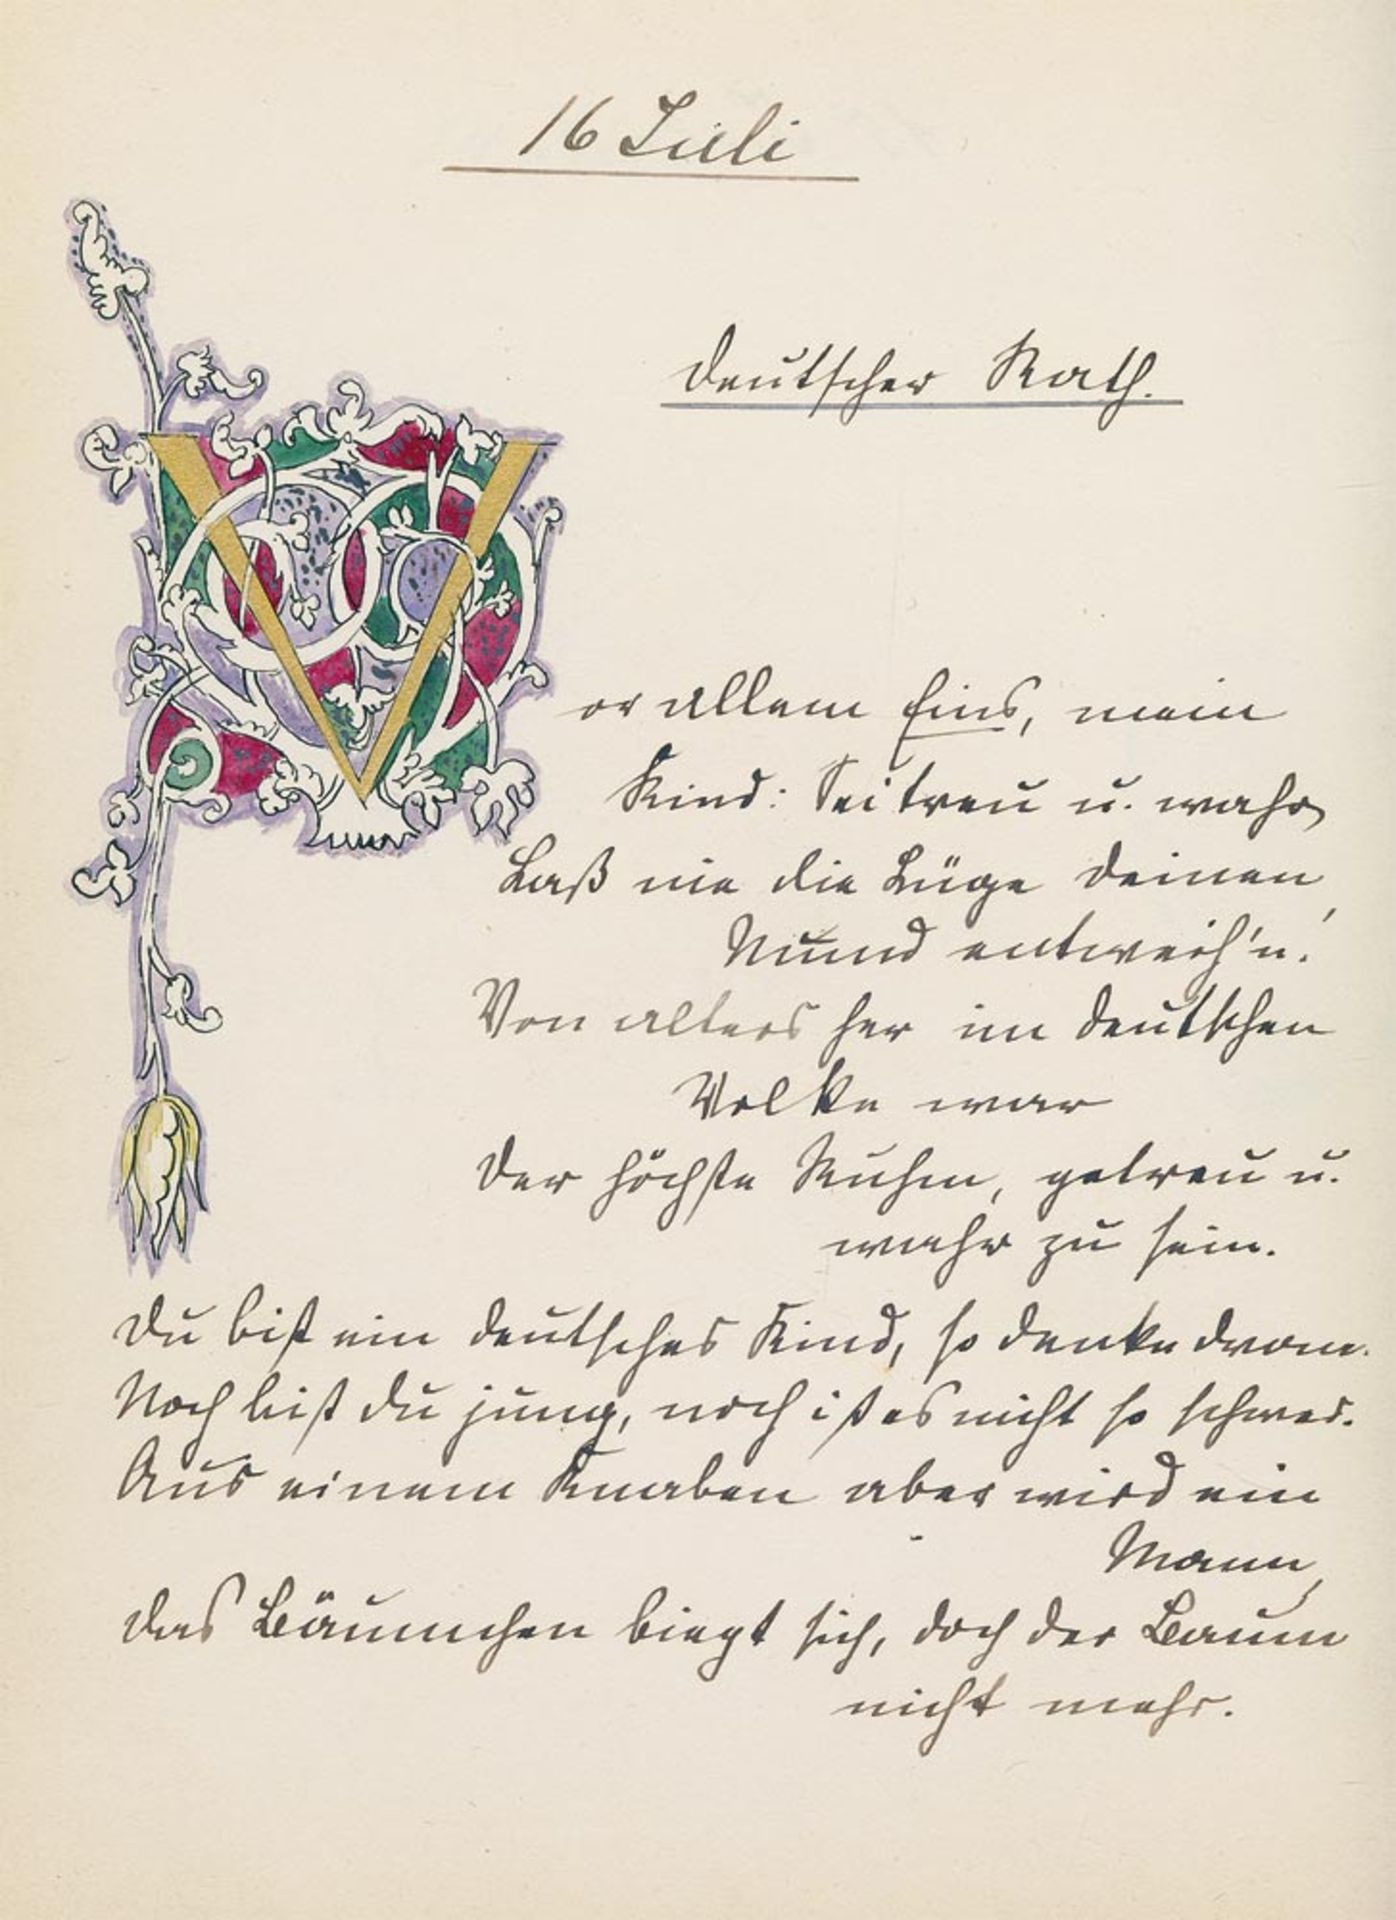 16 Juli
Deutscher Rath.
Vor allem Eins, mein
Kind: Sei treu u. wahr
Laß nie die Lüge deinen
Mund entweih'n!
Von alters her im deutschen
Volke war
Der höchste Ruhm, getreu u.
wahr zu sein.
Du bist ein deutsches Kind, so denke dran.
Noch bist du jung, noch ist es nicht so schwer.
Aus einem Knaben aber wird ein
Mann,
Das Bäumchen biegt sich, doch der Baum
nicht mehr.